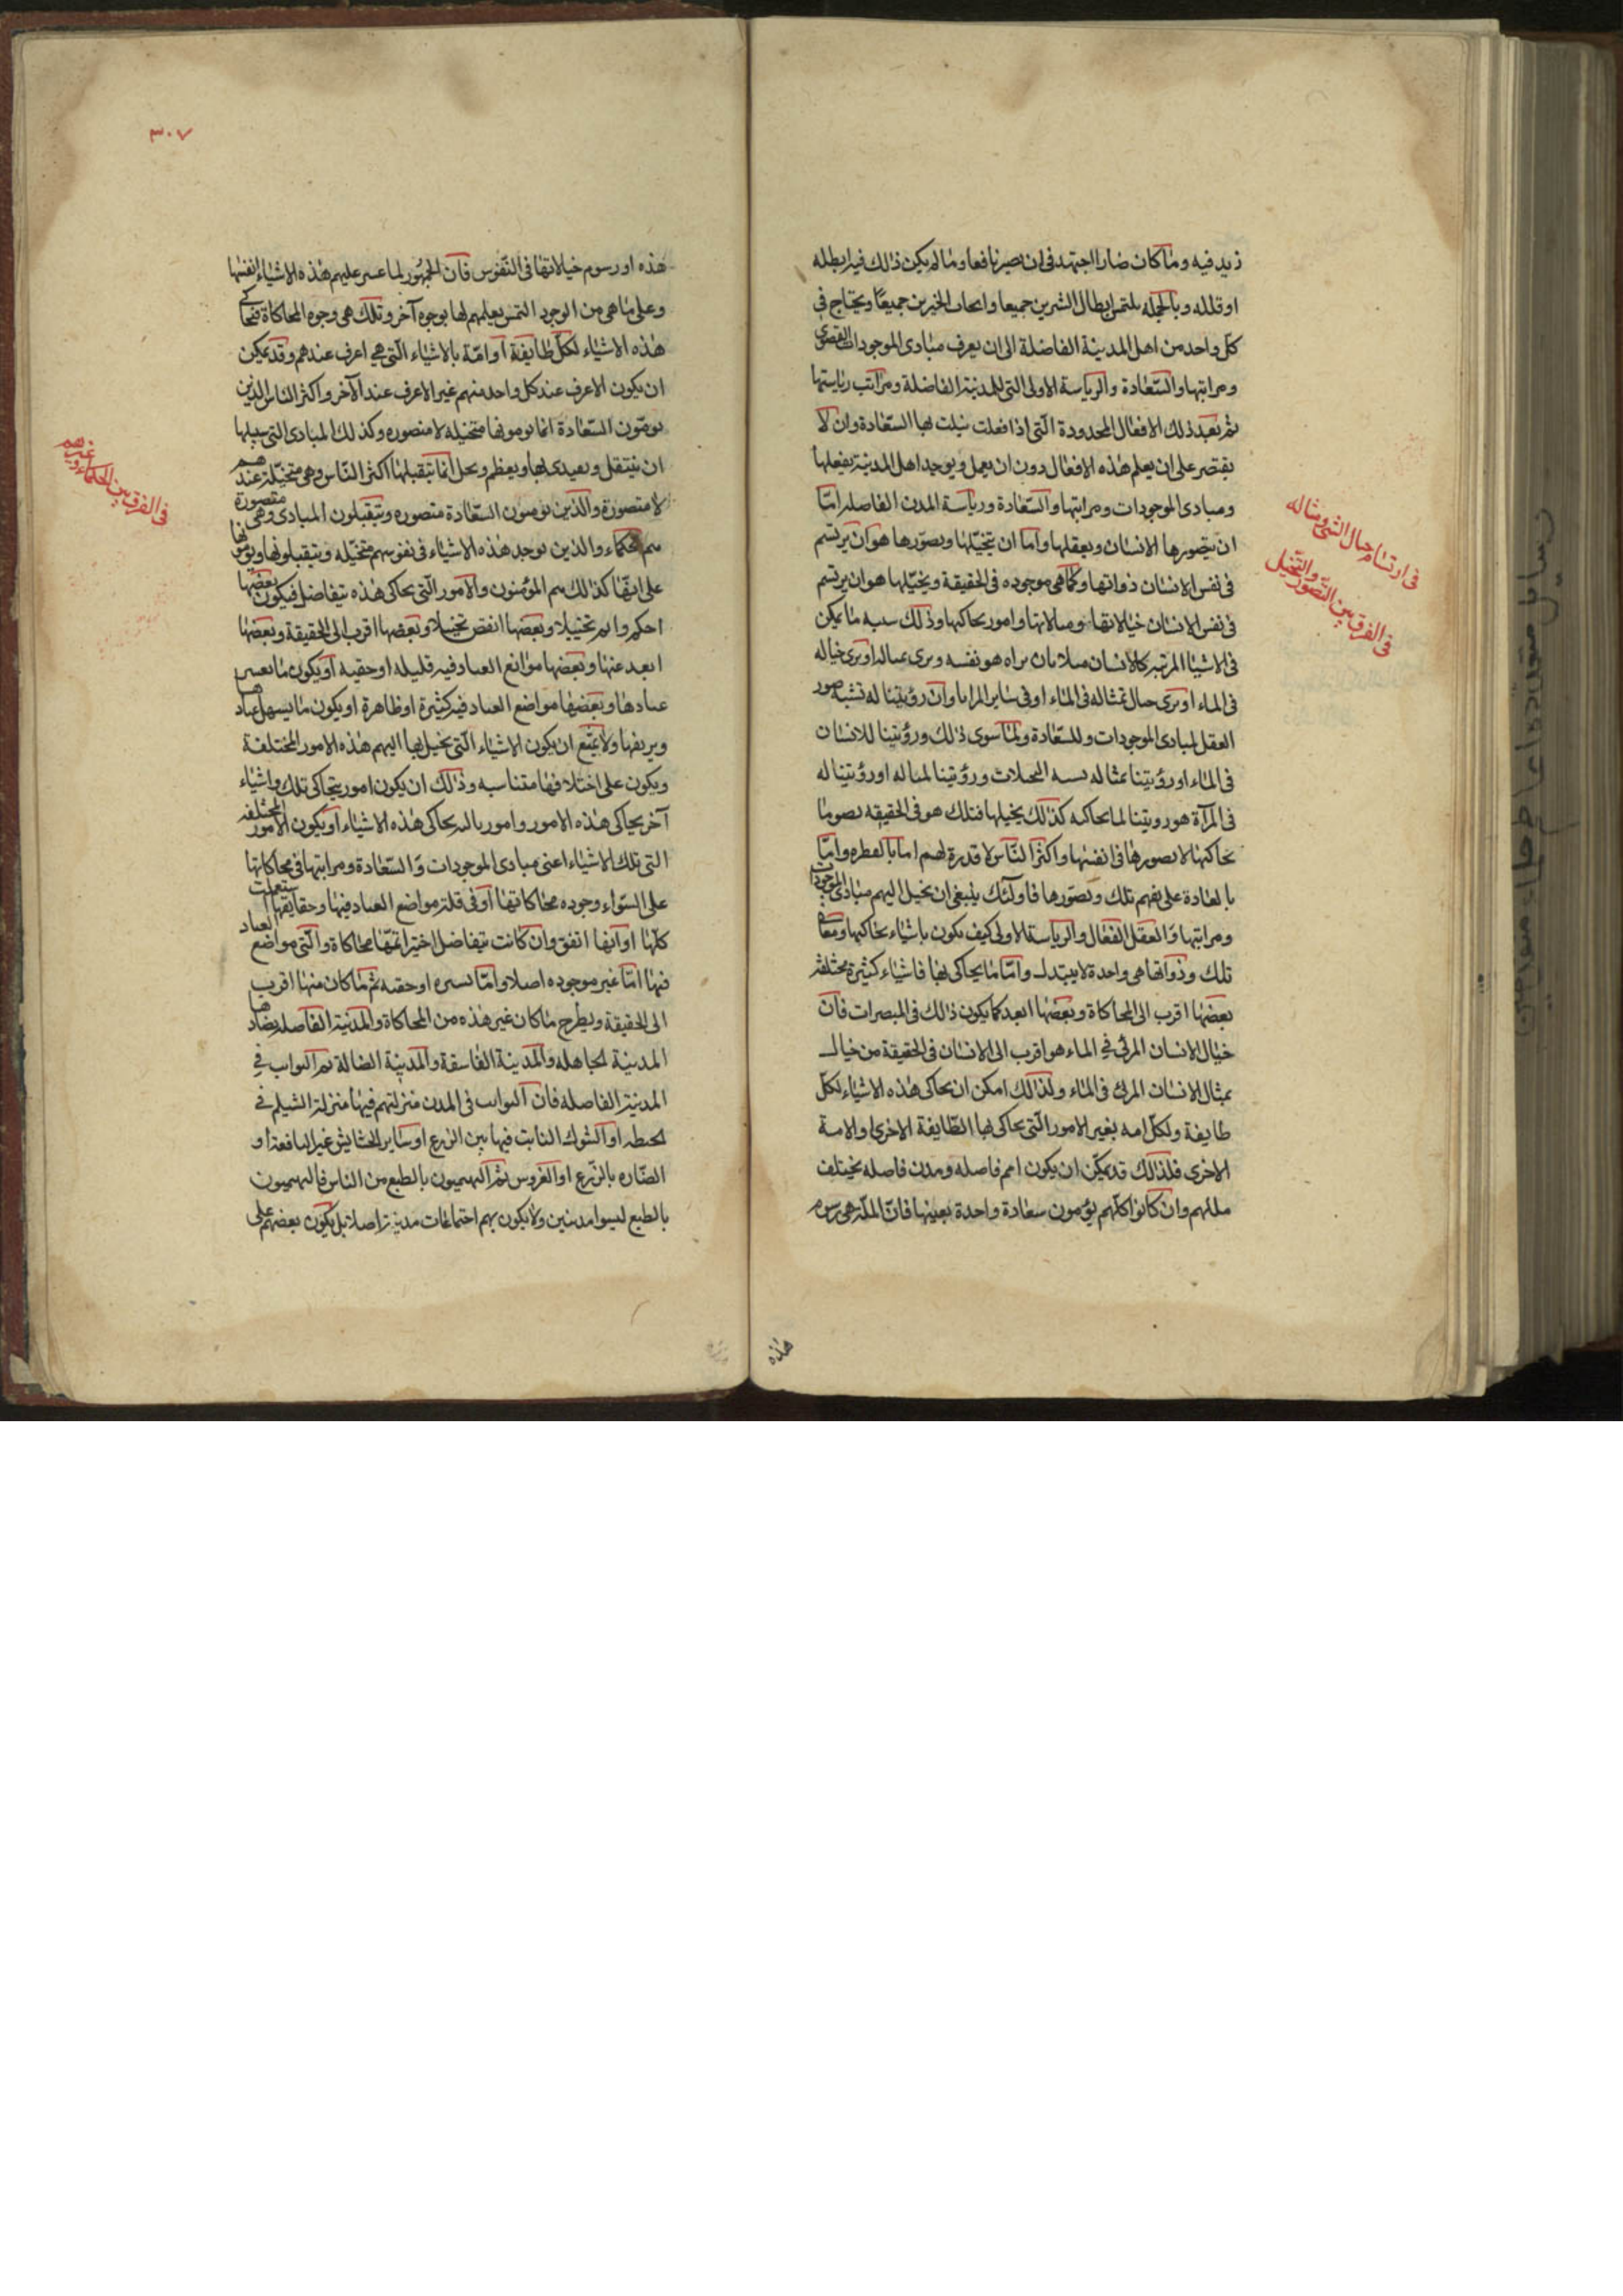 زيد فيه وما كان ضارا اجتهد فى ان يصير نافعا وما لم يكن ذلك فيه ابطله
او قلله وبالجمله يلتمس ابطال الشرين جميعا وايجاب الخيرين جميعا ويحتاج فى
كل واحد من اهل المدينة الفاضلة الى ان يعرف مبادى الموجودات القصوى
ومراتبها والسعادة والرياسة الاولى التى للمدينة الفاضلة ومراتب رياستها
ثم بعد ذلك الافعال المحدودة التى اذا فعلت نيلت بها السعادة وان لا
يقتصر على ان يعلم هذه الافعال دون ان يعمل ويوجد اهل المدينة بفعلها
ومبادى الموجودات ومراتبها والسعادة ورياسة المدن الفاضله اما
ان يتصورها الانسان ويعقلها واما ان يتخيلها وتصورها هو ان يرتسم
فى نفس الانسان ذواتها وكما هى موجوده فى الحقيقة وتخيلها هو ان يرتسم
فى نفس الانسان خيالاتها ومثالاتها وامور يحاكيها وذلك شبيه ما يمكن
فى الاشياء المرئيه كالانسان مثلا بان يراه هو نفسه ويرى تمثاله او يرى خياله
فى الماء او يرى خيال تمثاله فى الماء او فى ساير المرايا وان رؤيتنا له تشبه تصور
العقل لمبادى الموجودات وللسعادة ولما سوى ذلك ورؤيتنا للانسان
فى الماء او رؤيتنا تمثاله يشبه التخيلات ورؤيتنا لمثاله او رؤيتنا له
فى المرآة هو رويتنا لما يحاكيه كذلك تخيلها فتلك هو فى الحقيقه تصورما
يحاكيها لا تصورها فى انفسها واكثر الناس لا قدرة لهم اما بالفطره واما
بالعادة على تفهم تلك وتصورها فاولئك ينبغى ان يخيل اليهم مبادى الموجودات
ومراتبها والعقل الفعال والرياسة الاولى كيف يكون باشياء يحاكيها ومعانى
تلك وذواتها هى واحدة لا يتبدل واما ما يحاكى بها فاشياء كثيرة مختلفة
بعضها اقرب الى المحاكاة وبعضها ابعد كما يكون ذلك فى المبصرات فان
خيال الانسان المرئى فى الماء هو اقرب الى الانسان فى الحقيقة من خيال
تمثال الانسان المرئى فى الماء ولذلك امكن ان يحاكى هذه الاشياء لكل
طايفة ولكل امه بغير الامور التى يحاكى بها الطايفة الاخرى او الامة
الاخرى فلذلك قد يمكن ان يكون امم فاضله ومدن فاضله يختلف
مللهم وان كانوا كلهم يؤمون سعادة واحدة بعينها فان الملة هى رسوم
هذه
فى ارتسام خيال الشى ومثاله
فى الفرق بين التصور والتخيل
٣٠٧
هذه او رسوم خيالاتها فى النفوس فان الجمهور لما عسر عليهم هذه الاشياء انفسها
وعلى ما هى من الوجود التمس تعليمهم لها بوجوه آخر وتلك هى وجوه المحاكاة فتحاكى
هذه الاشياء لكل طايفة او امة بالاشياء التى هى اعرف عندهم وقد يمكن
ان يكون الاعرف عند كل واحد منهم غير الاعرف عند الآخر واكثر الناس الذين
يومون السعادة انما يومونها متخيله لا متصوره وكذلك المبادى التى سبيلها
ان يتقبل ويقتدى بها ويعظم ويجل انما يتقبلها اكثر الناس وهى متخيلة عندهم
لا متصورة والذين يومون السعادة متصوره ويتقبلون المبادى وهى متصورة
هم الحكماء والذين يوجد هذه الاشياء فى نفوسهم متخيله ويتقبلونها ويومونها
على انها كذلك هم المؤمنون والامور التى يحاكى هذه يتفاضل فيكون بعضها
احكم واتم تخييلا وبعضها انقص تخييلا وبعضها اقرب الى الحقيقة وبعضها
ابعد عنها وبعضها مواضع العناد فيه قليله او خفيه او يكون ما يعسر
عنادها وبعضها مواضع العناد فيه كثيرة او ظاهرة او يكون ما يسهل عنادها
وتزييفها ولا يمتنع ان يكون الاشياء التى يخيل بها اليهم هذه الامور المختلفة
ويكون على اختلافها متناسبه وذلك ان يكون امور يحاكى تلك واشياء
آخر يحاكى هذه الامور وامور ثالثه يحاكى هذه الاشياء او يكون الامور المختلفه
التى تلك الاشياء اعنى مبادى الموجودات والسعادة ومراتبها فى محاكاتها
على السواء وجوده محاكاتها او فى قلة مواضع العناد فيها وخفايها استعملت
كلها او ايها اتفق وان كانت يتفاضل اختير اتمها محاكاة والتى مواضع العناد
فيها اما غير موجوده اصلا واما يسيره او خفيه ثم ما كان منها اقرب
الى الحقيقة ويطرح ما كان غير هذه من المحاكاة والمدنية الفاضله يضادها
المدينة الجاهله والمدينة الفاسقة والمدينة الضالة ثم النوابت فى
المدينة الفاضله فان النوابت فى المدن منزلتهم فيها منزلة الشيلم فى
الحنطه او الشوك النابت فيها بين الزرع او ساير الحشايش غير النافعة او
الضاره بالزرع او الغروس ثم البهيميون بالطبع من الناس فالبهيميون
بالطبع ليسوا مدنيين ولا يكون بهم اجتماعات مدنية اصلا بل يكون بعضهم على
فى الفرق بين الحكماء وغيرهم